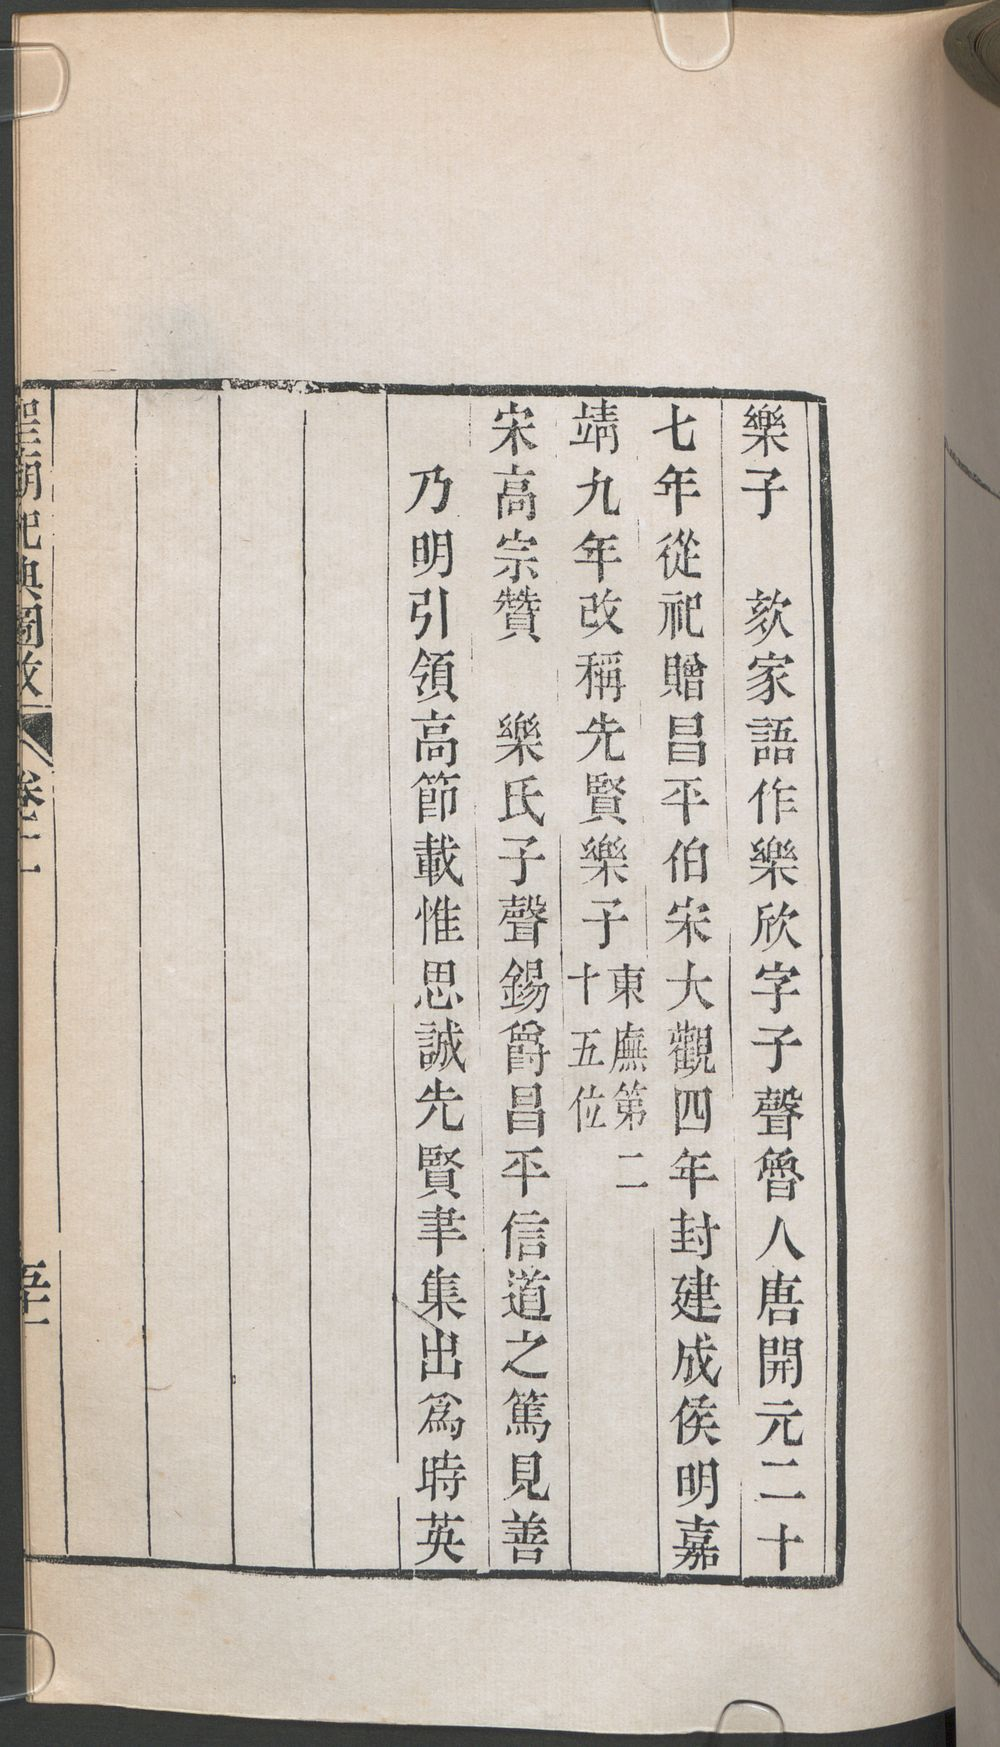 樂子　欬家語作樂欣字子聲魯人唐開元二十
七年從祀贈昌平伯宋大觀四年封建成侯明嘉
靖九年改稱先賢樂子東廡第二
十五位
宋高宗贊　樂氏子聲錫爵昌平信道之篤見善
乃明引領高節載惟思誠先賢聿集出爲時英
聖廟祀典圖攷
卷二